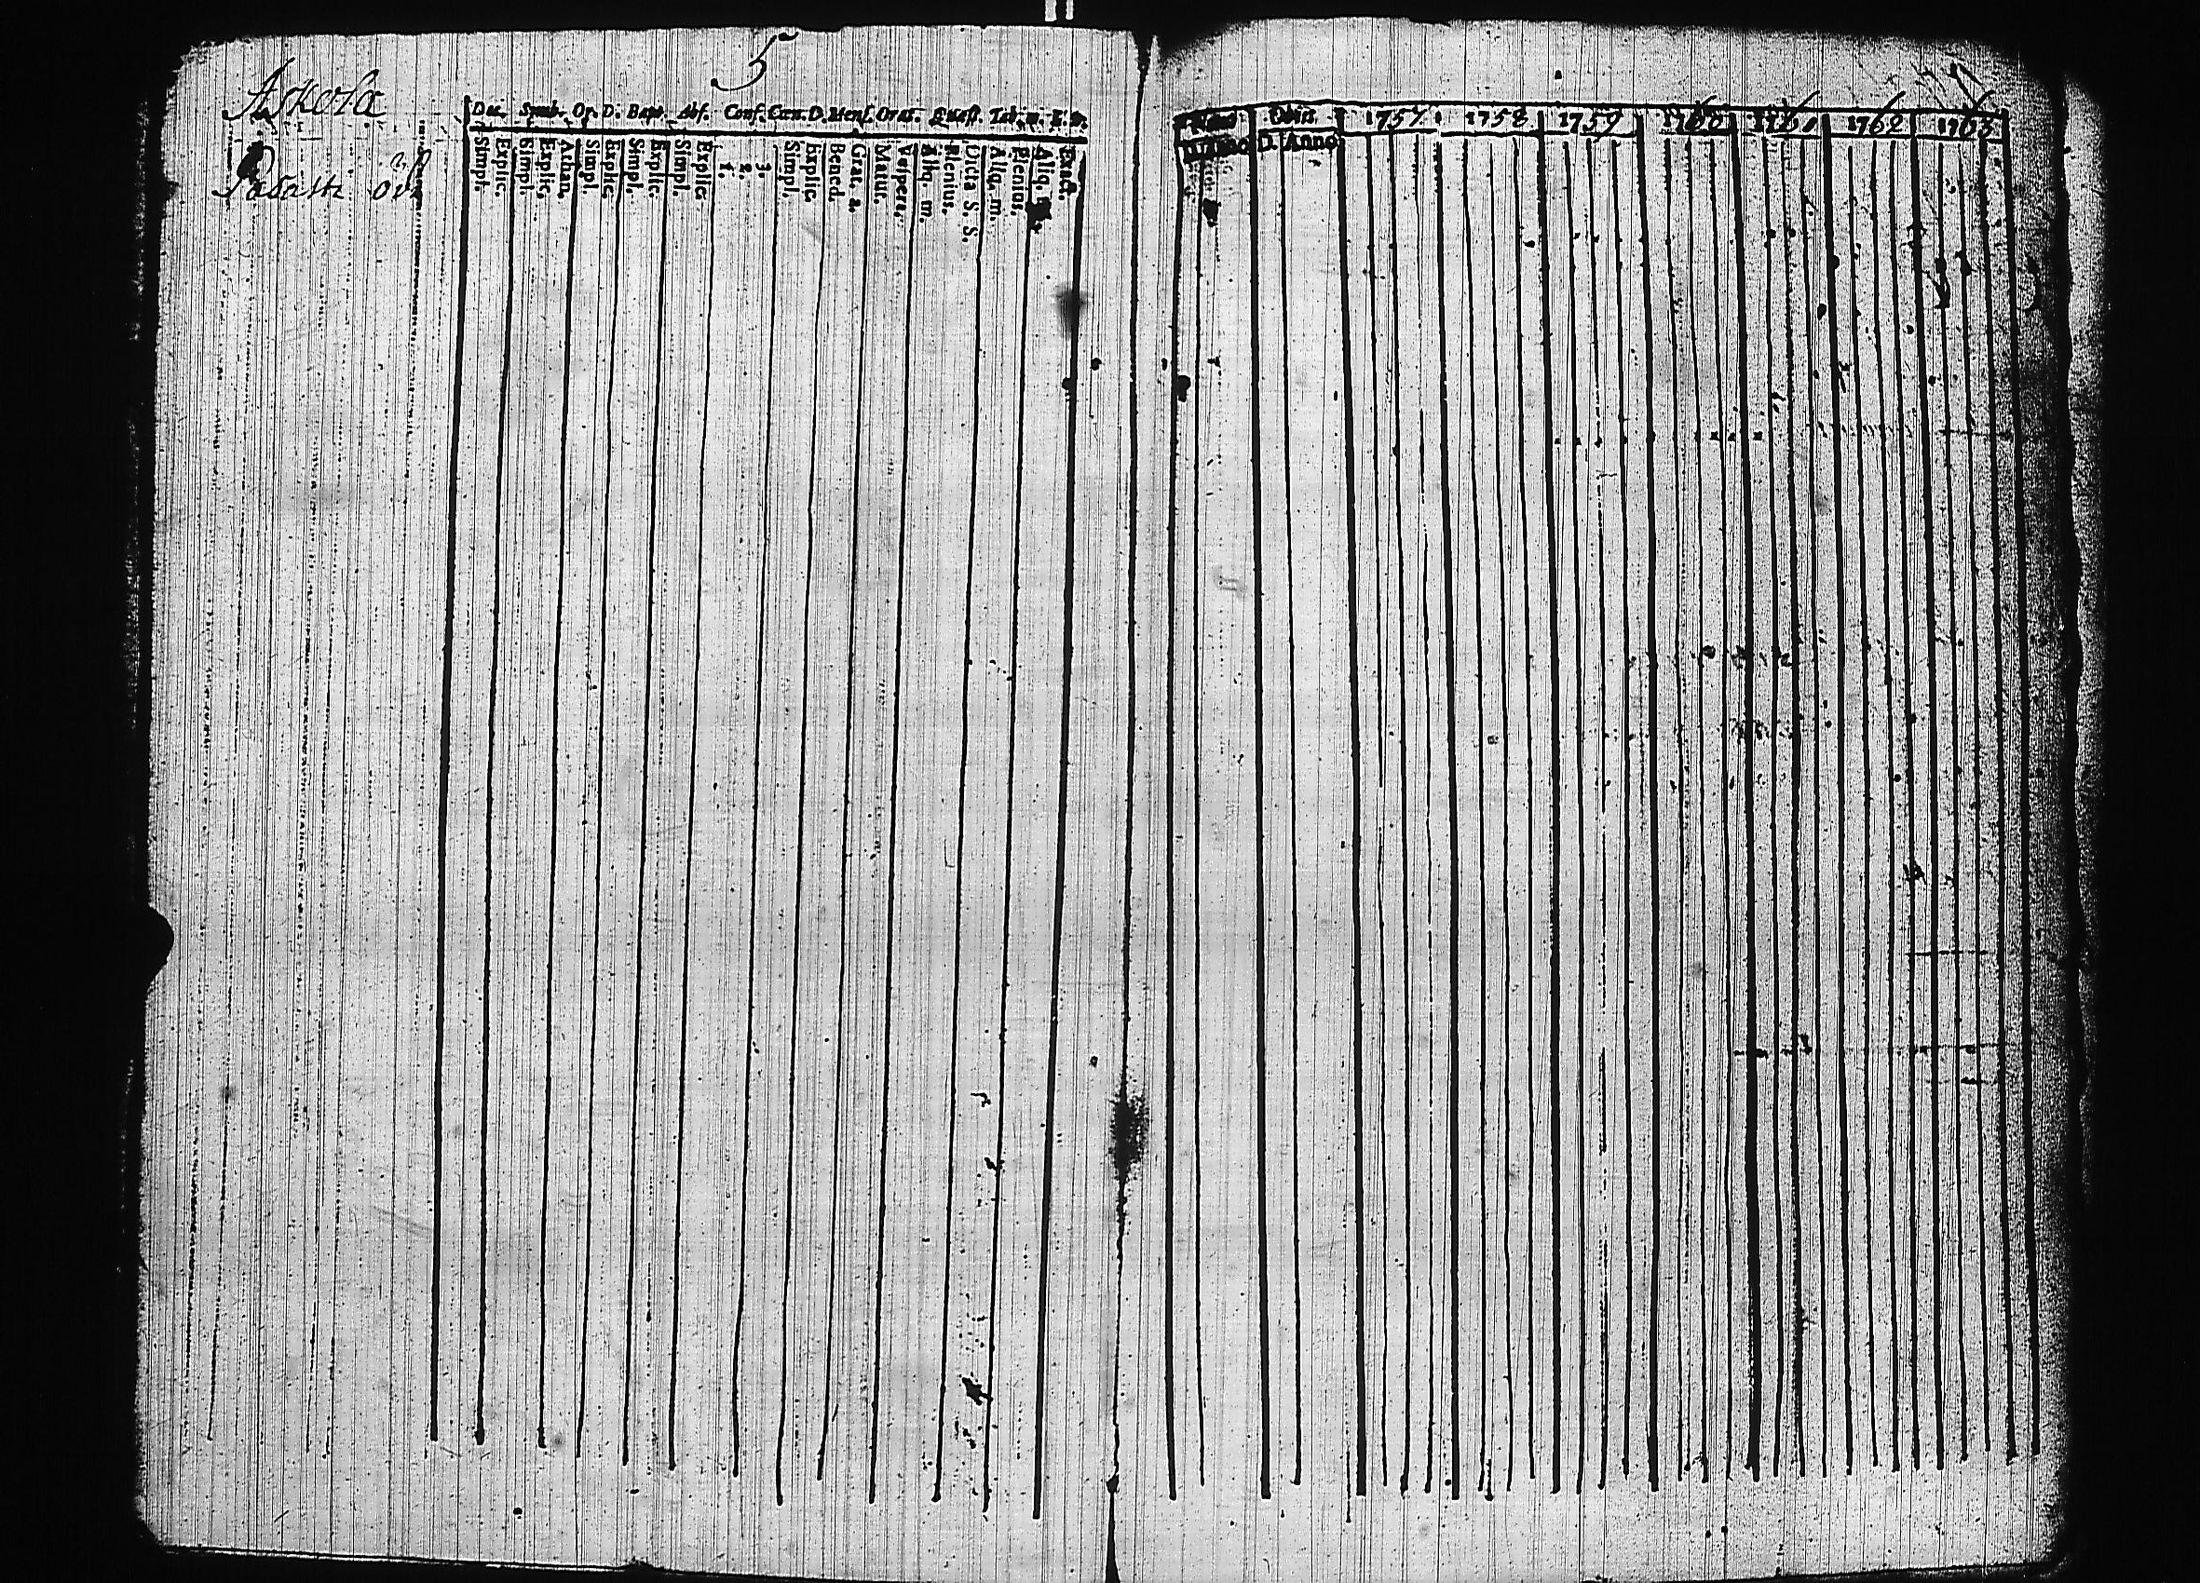 5
Askola
Dec. Symb. Or. D. Bapt. Abs. Conf. Cœn. D. Mens. Orat. Quæst. Tab. œ.
Simpl. Explic. Simpl. Explic. Athan. Simpl. Explic. Simpl. Explic. Simpl. Explic. 1. 2. 3. Simpl. Explic. Bened. Grat. a. Matut. Vespert. Aliq. m. Plenius. Dicta S. S. Aliq. m. Plenius. Aliq. Exact.
Obiit 1757 1758 1759 1760 1761 1762 1763
D. Anno